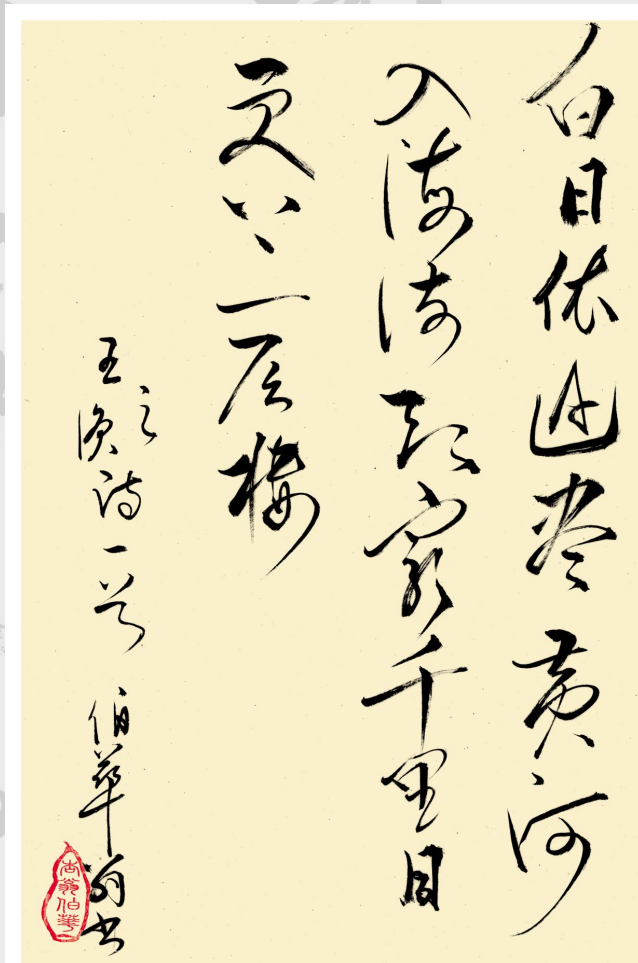 白日依山尽黄河
入海流欲穷千里目
更上一层楼
王之涣诗一首
伯華 书
翁伯華